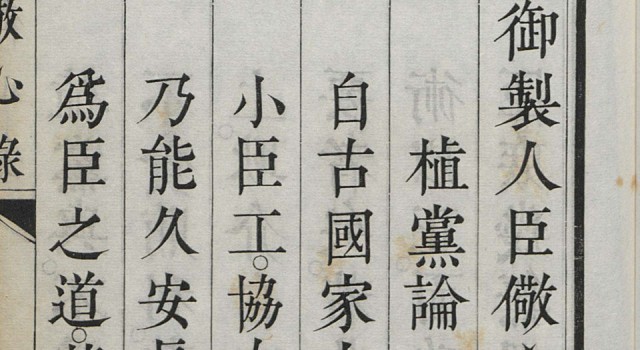 御製人臣儆
植黨論
自古國家
小臣工。協
乃能久安
爲臣之道。
心錄